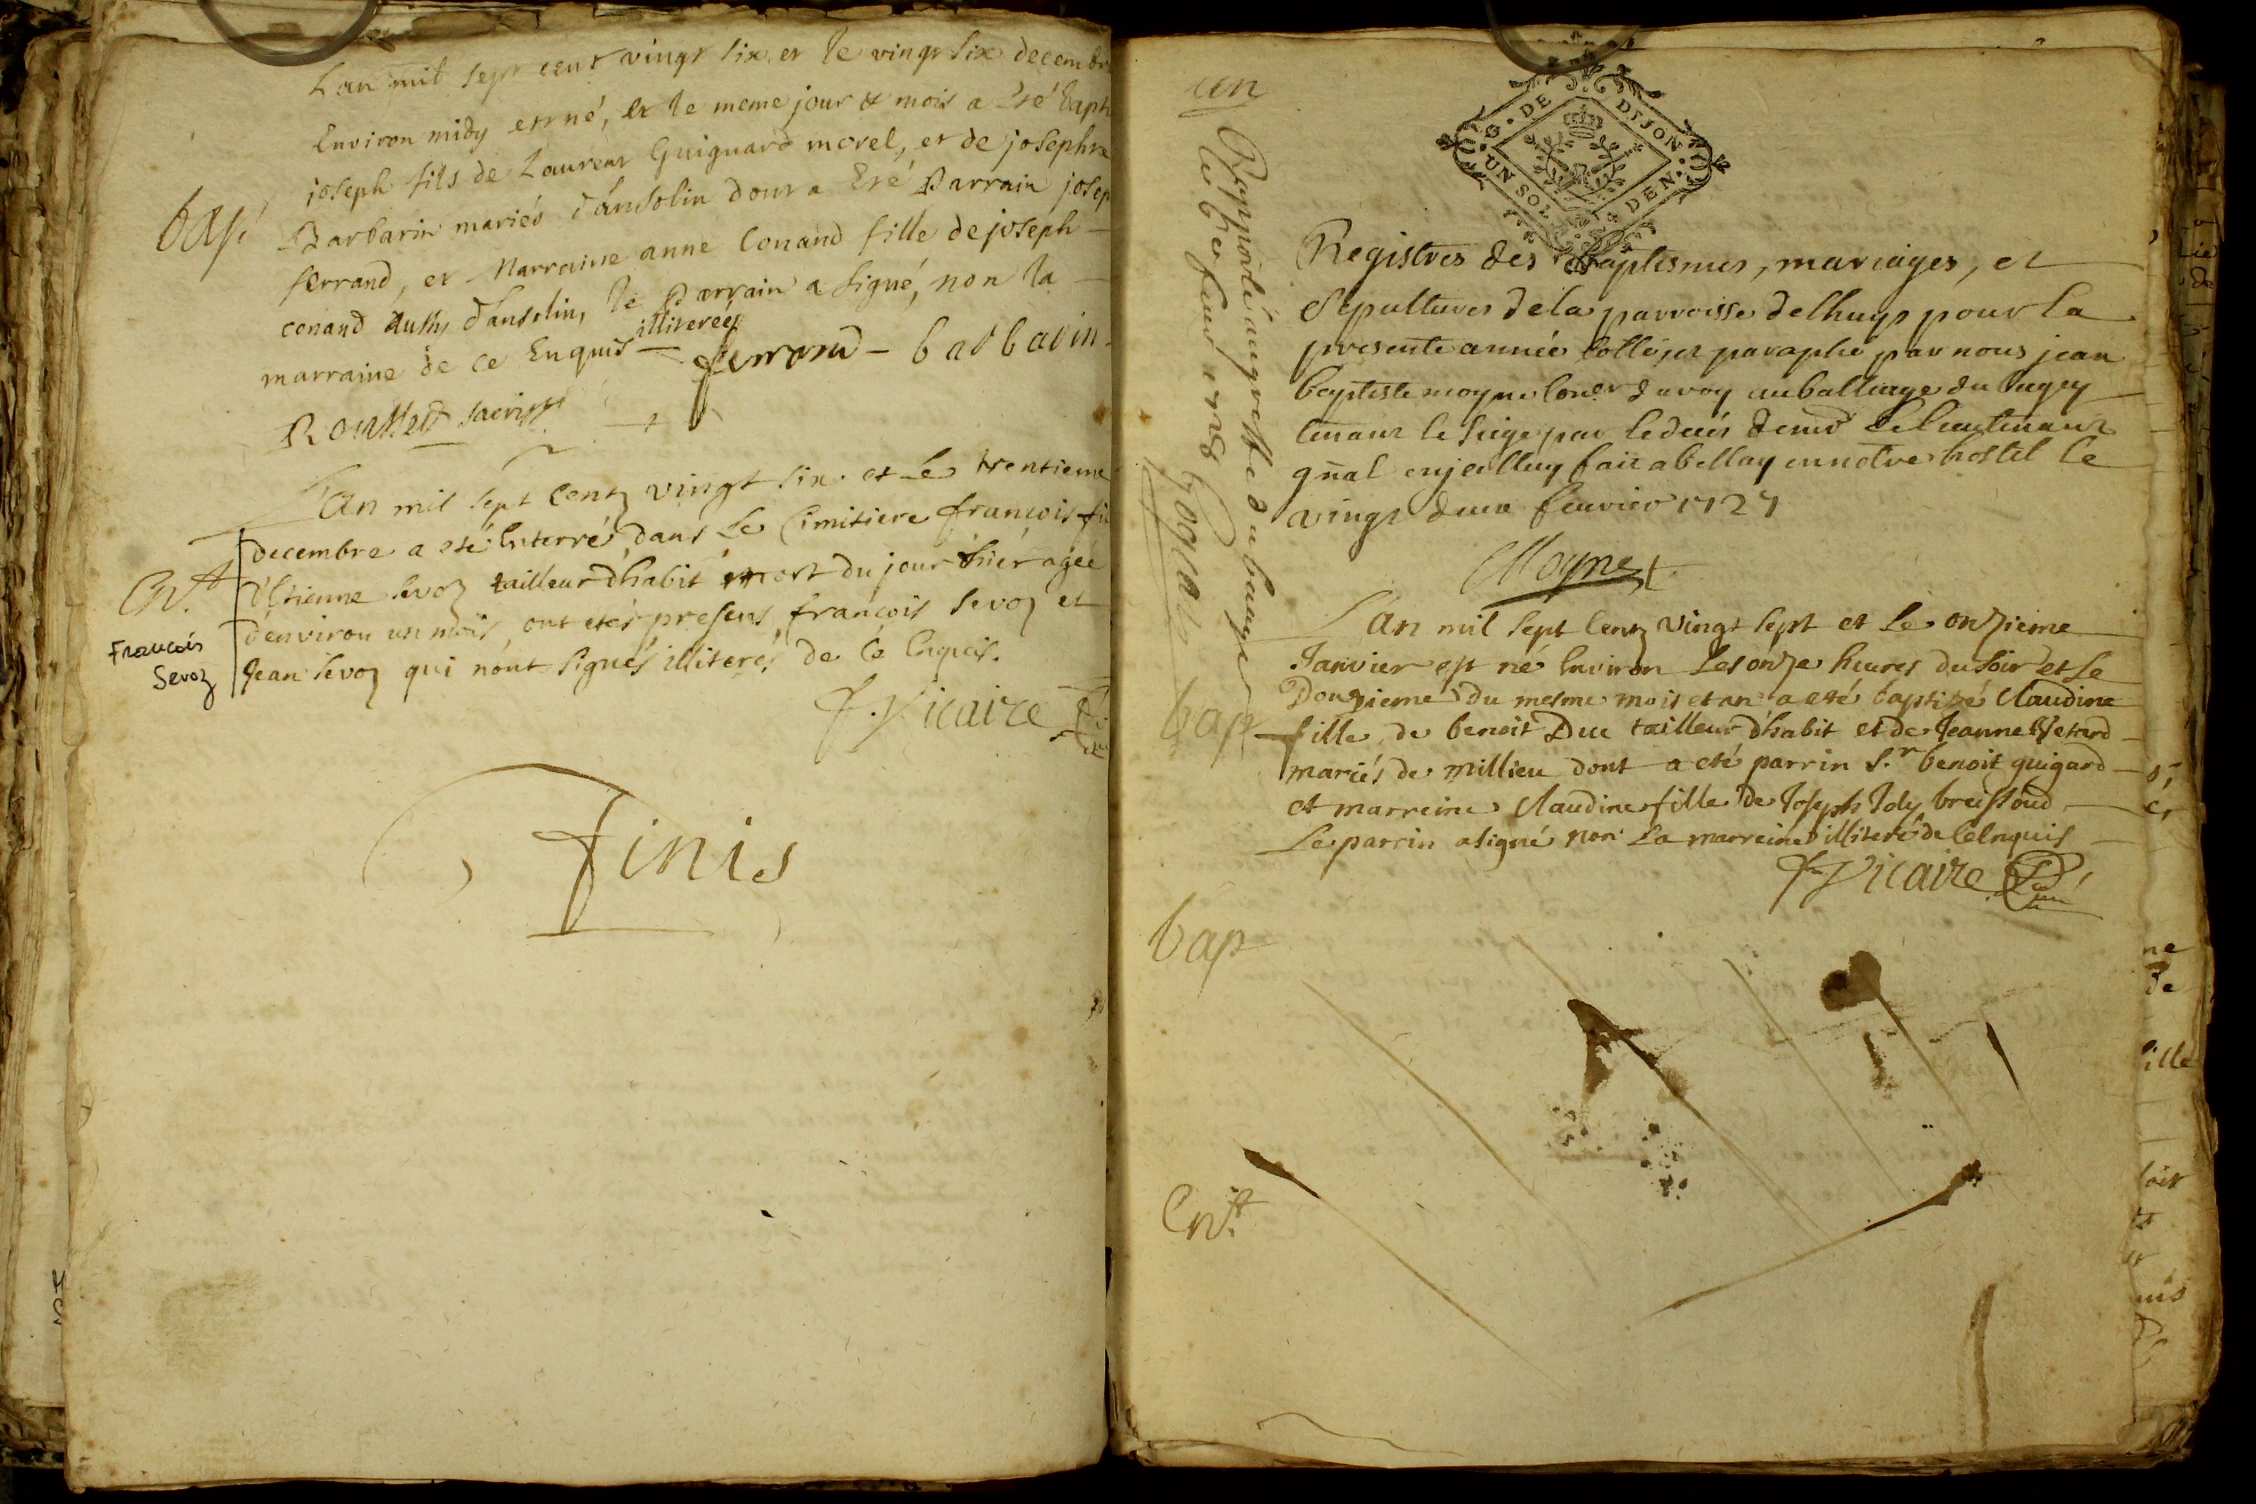 Lan mil sept cent vingt six et le vingt six decembr
Environ midy est né, et le meme jour & mois a Eté bapt
joseph fils de Laurent Guiguard morel, et de josephte
Barbarin mariés d'ansolin dont a Eté Parrain josep
ferrand, et Marraine anne Conand fille de joseph
conand aussy d'ansolin, le Parrain a signé, non la
marraine de ce Enquis illiterée
ferrand - barbarin
bap.
Lan mil sept Centz vingt six et Le trentieme
decembre a eté Enterré dans Le Cimitiere francois fi
d'Etienne Sevoz tailleur d'habit mort du jour d'hier agée
d'environ un mois, ont etés presens francois Sevoz et
Jean Sevoz qui n'ont signés illiterés de Ce Enquis.
Ent
Francois
Sevoz
f. Vicaire
Finis
G. DE DIJON
UN SOL DEN.
Registres des Baptismes, mariages, et
Sepultures de la parroisse de lhuys pour la
presente année Cottéz et paraphé par nous jean
baptiste moyne Coner du roy au balliage du bugey
tenant le siege par le decés de mr Le lieutenant
gñal en jcelluy fait a bellay en notre hostel le
vingt deux feuvrier 1727
Moyne
Lan mil sept Centz vingt sept et Le onzieme
Janvier est né Environ Les onze heures du soir et Le
Douzieme du mesme mois et an a eté baptizé Claudine
fille de benoit Duc tailleur d'habit et de Jeanne
mariés de millieu dont a eté parrin Sr benoit guigard
et marreine Claudine fille de Joseph Joly
Le parrin a signé non La marreine illiteré de Ce Enquis
f. Vicaire
bap
bap
Ent